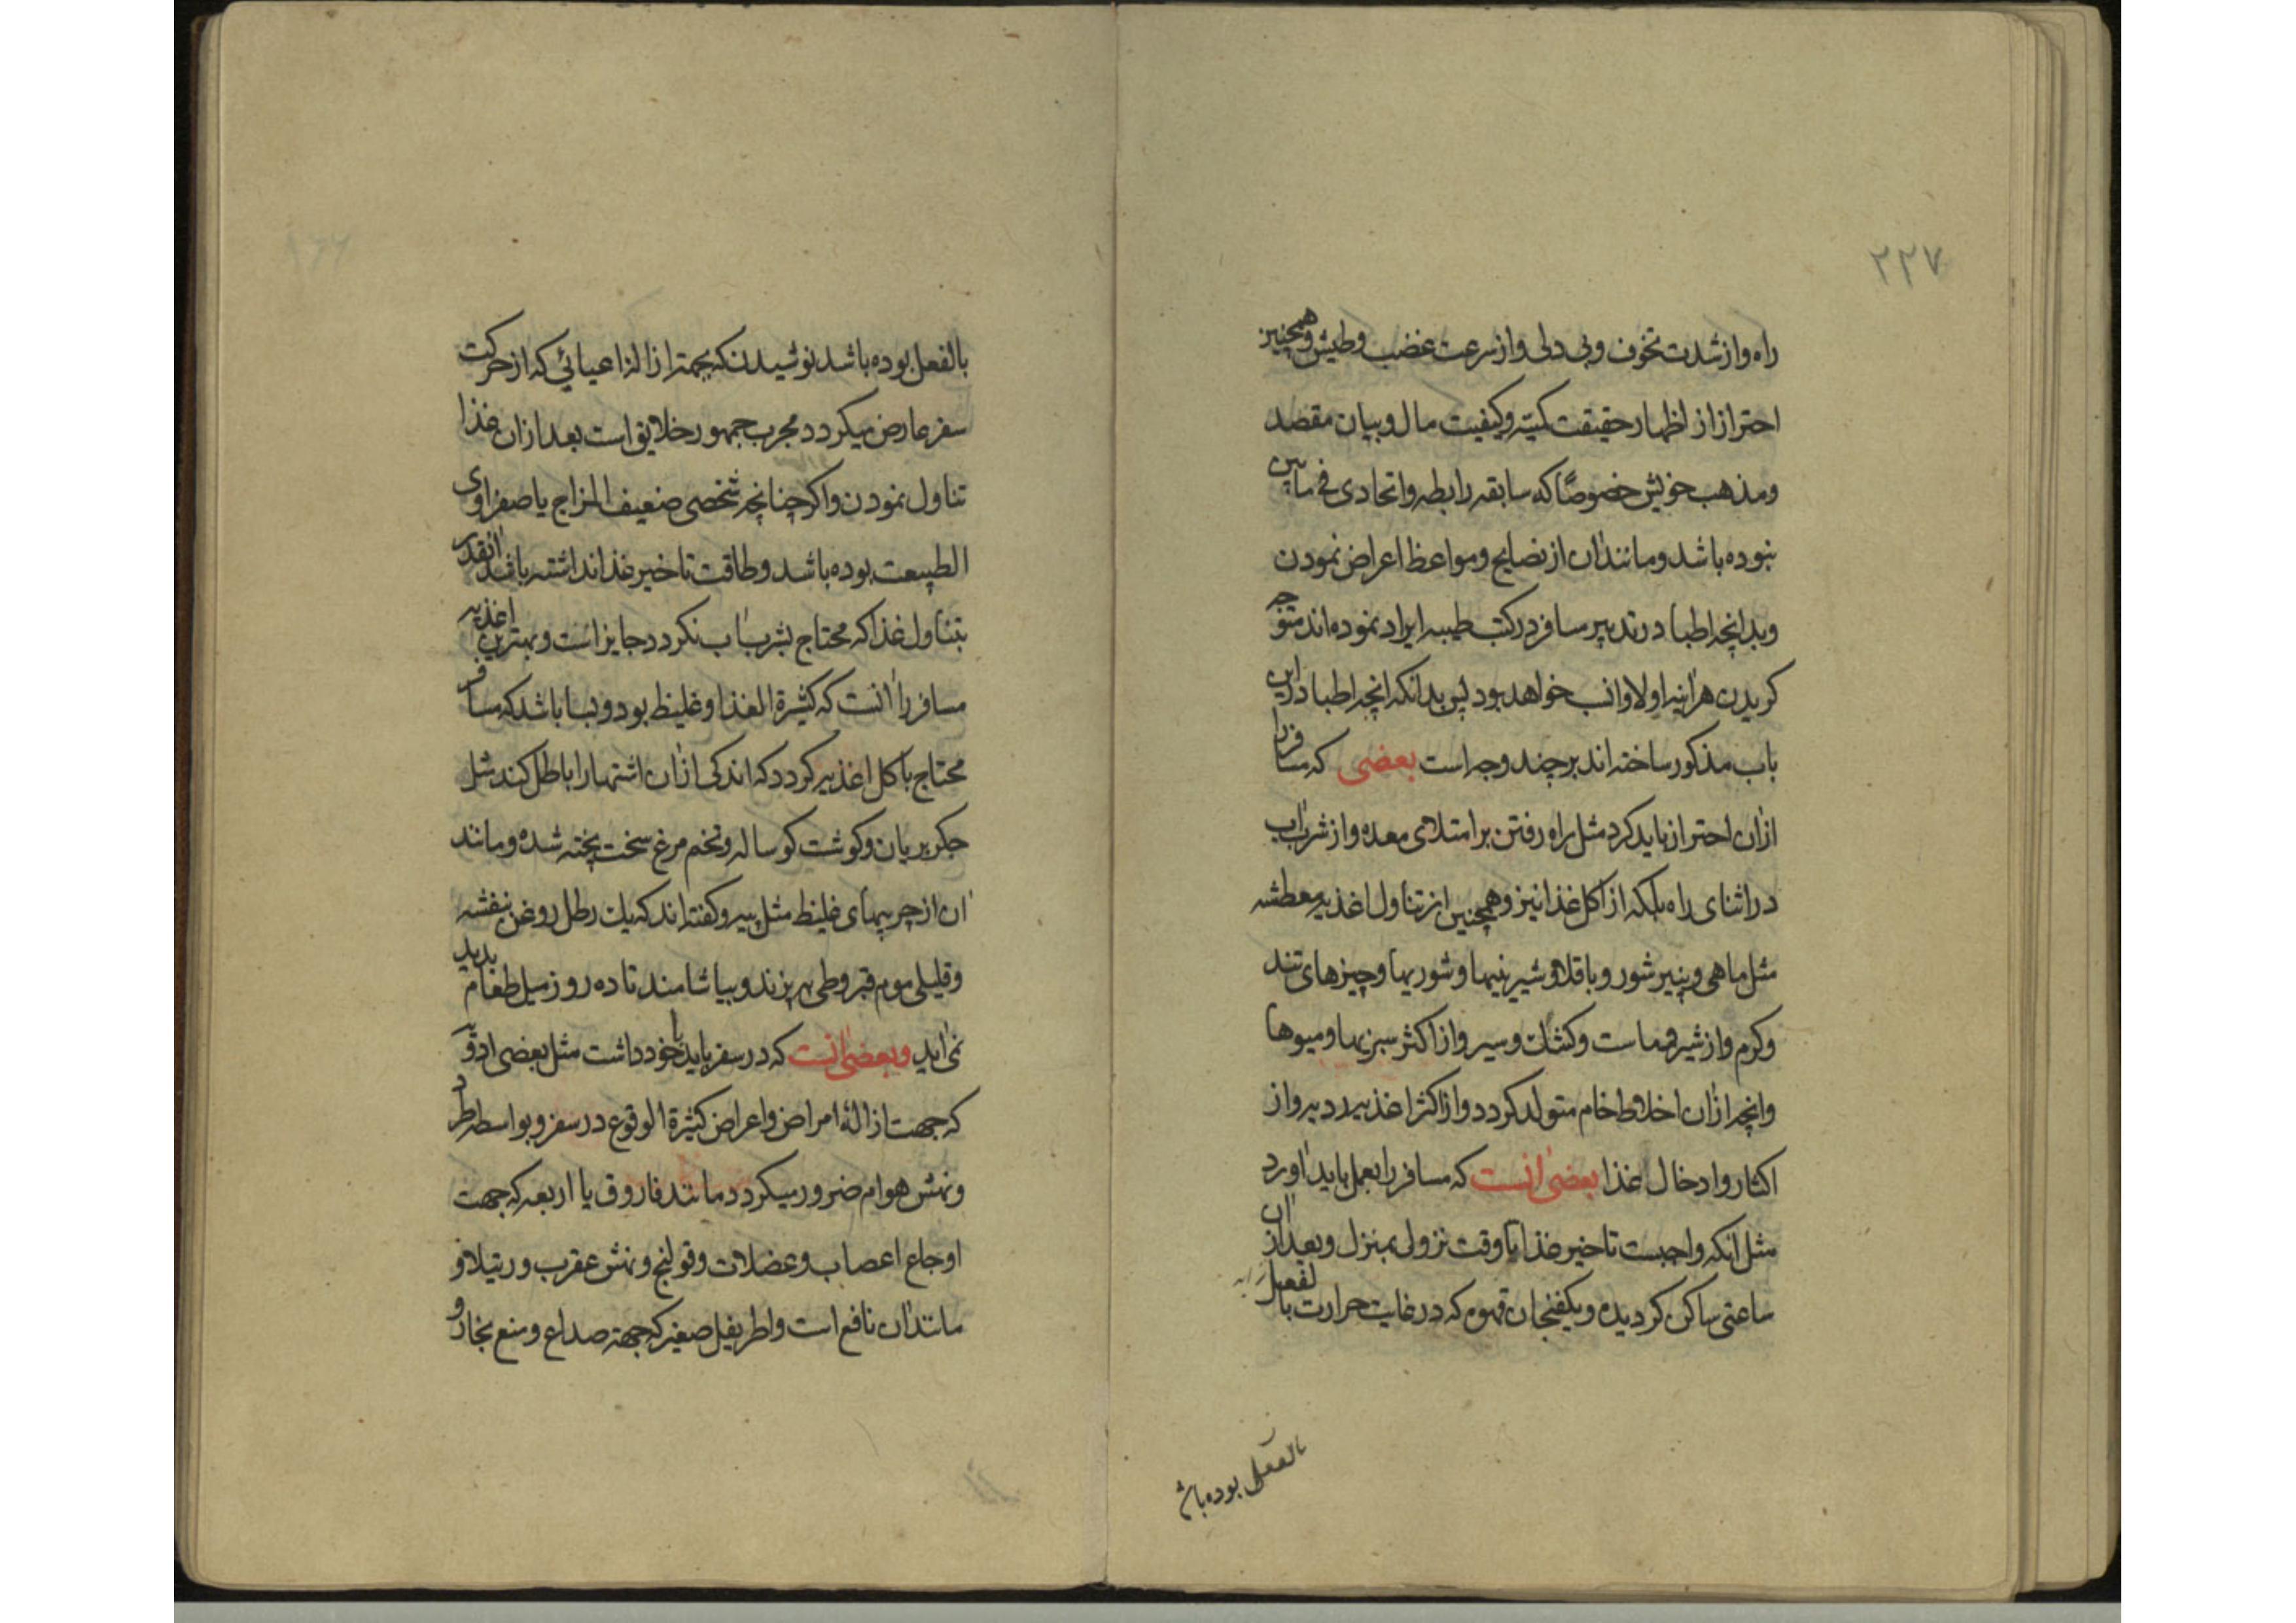 ۲۲۷
راه و از شدت تخوف و بی دلی و از سرعت غضب و طیش و همچنین
احتراز از اظهار حقیقت کمیّت و کیفیت مال و بیان مقصد
و مذهب خویش خصوصًا که سابقه رابطه و اتحادی فی مابین
نبوده باشد و مانند ان از نصایح و مواعظ اعراض نمودن
و بدانچه اطبا در تدبیر مسافر در کتب طبیه ایراد نموده اند متوجه
کریدن هراینه اولا و انسب خواهد بود پس بدانکه انچه اطبا در این
باب مذکور ساخته اند بر چند وجه است بعضی که مسافر را
ازان احتراز باید کرد مثل راه رفتن بر امتلای معده و از شرب اب
در اثنای راه بلکه از اکل غذا نیز و همچنین از تناول اغذیه معطشه
مثل ماهی و پنیر شور و باقلا و شیرینیها و شوریها و چیزهای تند
و کرم و از شیر و ماست و کشک و سیر و از اکثر سبزیها و میوها
و انچه ازان اخلاط خام متولد کردد و از اکثر اغذیه ردیه و از
اکثار و ادخال غذا بعضی انست که مسافر را بعمل باید اورد
مثل انکه واجبست تاخیر غذا تا وقت نزول بمنزل و بعد از ان
ساعتی ساکن کردیده و یکفنجان قهوه که در غایت حرارت بالفعل
بالفعل بوده باش
بالفعل بوده باشد نوشیدن که بجهته ازاله اعیائی که از حرکت
سفر عارض میکردد مجرب جمهور خلایق است بعد ازان غذا
تناول نمودن و اکر چنانچه شخصی ضعیف المزاج یا صفراوی
الطبیعت بوده باشد و طاقت تاخیر غذا نداشته باشد انقدر
بتناول غذا که محتاج بشرب اب نکردد جایز است و بهترین اغذیه
مسافر را انست که کثیرة الغذا و غلیظ بود و بسا باشد که مسافر
محتاج باکل اغذیه کردد که اندکی ازان اشتها را باطل کند مثل
جکر بریان و کوشت کوساله و تخم مرغ سخت پخته شده و مانند
ان از چربیهای غلیظ مثل پیه و کفته اند که یک رطل روغن بنفشه
و قلیلی موم قیروطی بپزند و بیاشامند تا ده روز میل طعام بدید
نمی اید و بعضی انست که در سفر باید با خود داشت مثل بعضی ادویه
که جهت ازالهٔ امراض و اعراض کثیرة الوقوع در سفر و بواسطه طرد
و نهش هوام ضرور میکردد مانند فاروق یا اربعه که جهت
اوجاع اعصاب و عضلات و قولنج و نهش عقرب و رتیلا و
مانند ان نافع است و اطریفل صغیر که جهته صداع و منع بخار و